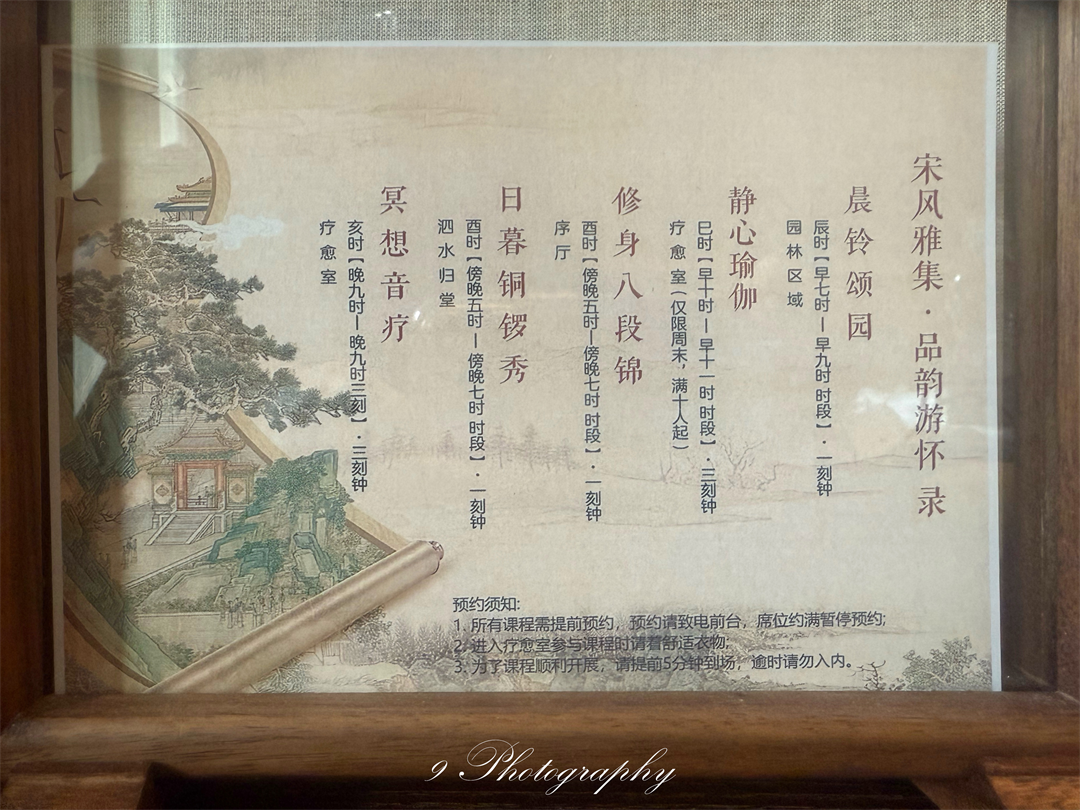 宋风雅集·品韵游怀录
晨铃颂园
辰时【早七时—早九时 时段】·一刻钟
园林区域
静心瑜伽
巳时【早十时—早十一时 时段】·三刻钟
疗愈室（仅限周末，满十人起）
修身八段锦
酉时【傍晚五时—傍晚七时 时段】·一刻钟
序厅
日暮铜锣秀
酉时【傍晚五时—傍晚七时 时段】·一刻钟
泗水归堂
冥想音疗
亥时【晚九时—晚九时三刻】·三刻钟
疗愈室
预约须知:
1、所有课程需提前预约，预约请致电前台，席位约满暂停预约;
2、进入疗愈室参与课程时请着舒适衣物;
3、为了课程顺利开展，请提前5分钟到场，逾时请勿入内。
9 Photography